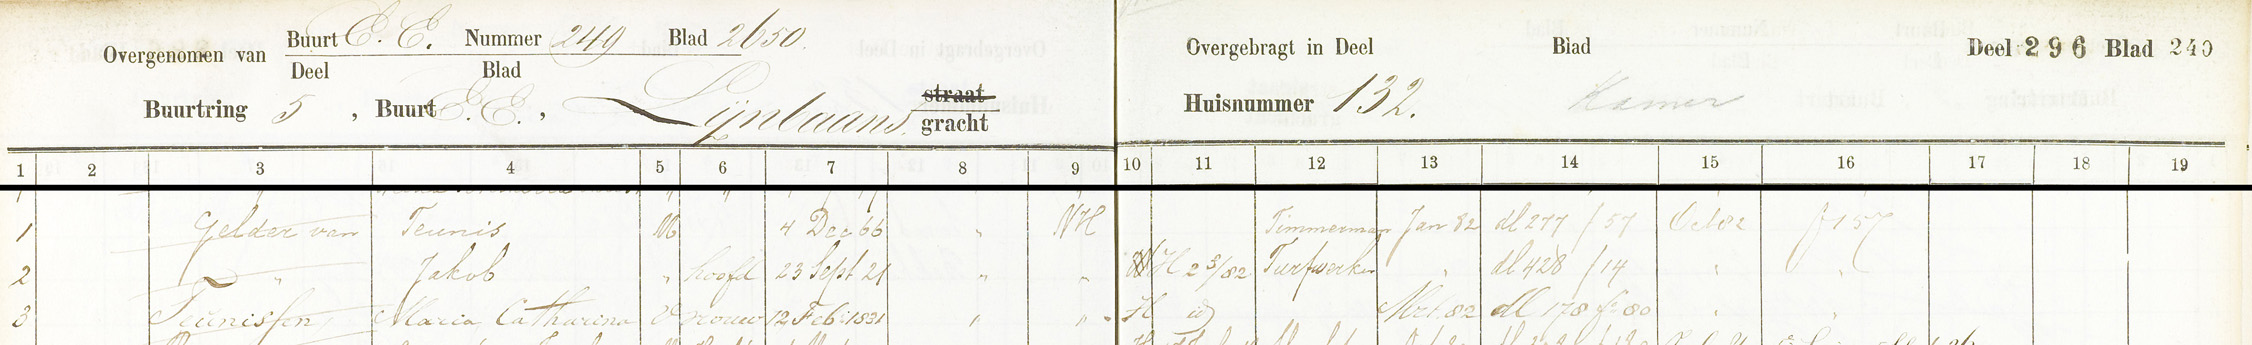 Overgenomen van Buurt E. E. Nummer 249 Blad 2650.
Deel Blad
Buurtring 5, Buurt E. E., Lijnbaans straat gracht
Overgebragt in Deel Blad Deel 296 Blad 240
Huisnummer 132. Kamer
1 2 3 4 5 6 7 8 9 10 11 12 13 14 15 16 17 18 19
1 Gelder van Teunis M 4 Dec 66 " NH Timmerman Jan 82 dl 277 / 57 Oct 82 f 157
2 " Jakob " hoofd 23 Sept 21 " " H 2 5/82 Turfwerker " dl 428 / 14 " "
3 Teunissen, Maria Catharina V vrouw 12 Feb: 1831 " " H id Mrt. 82 dl 178 fo 80 " "